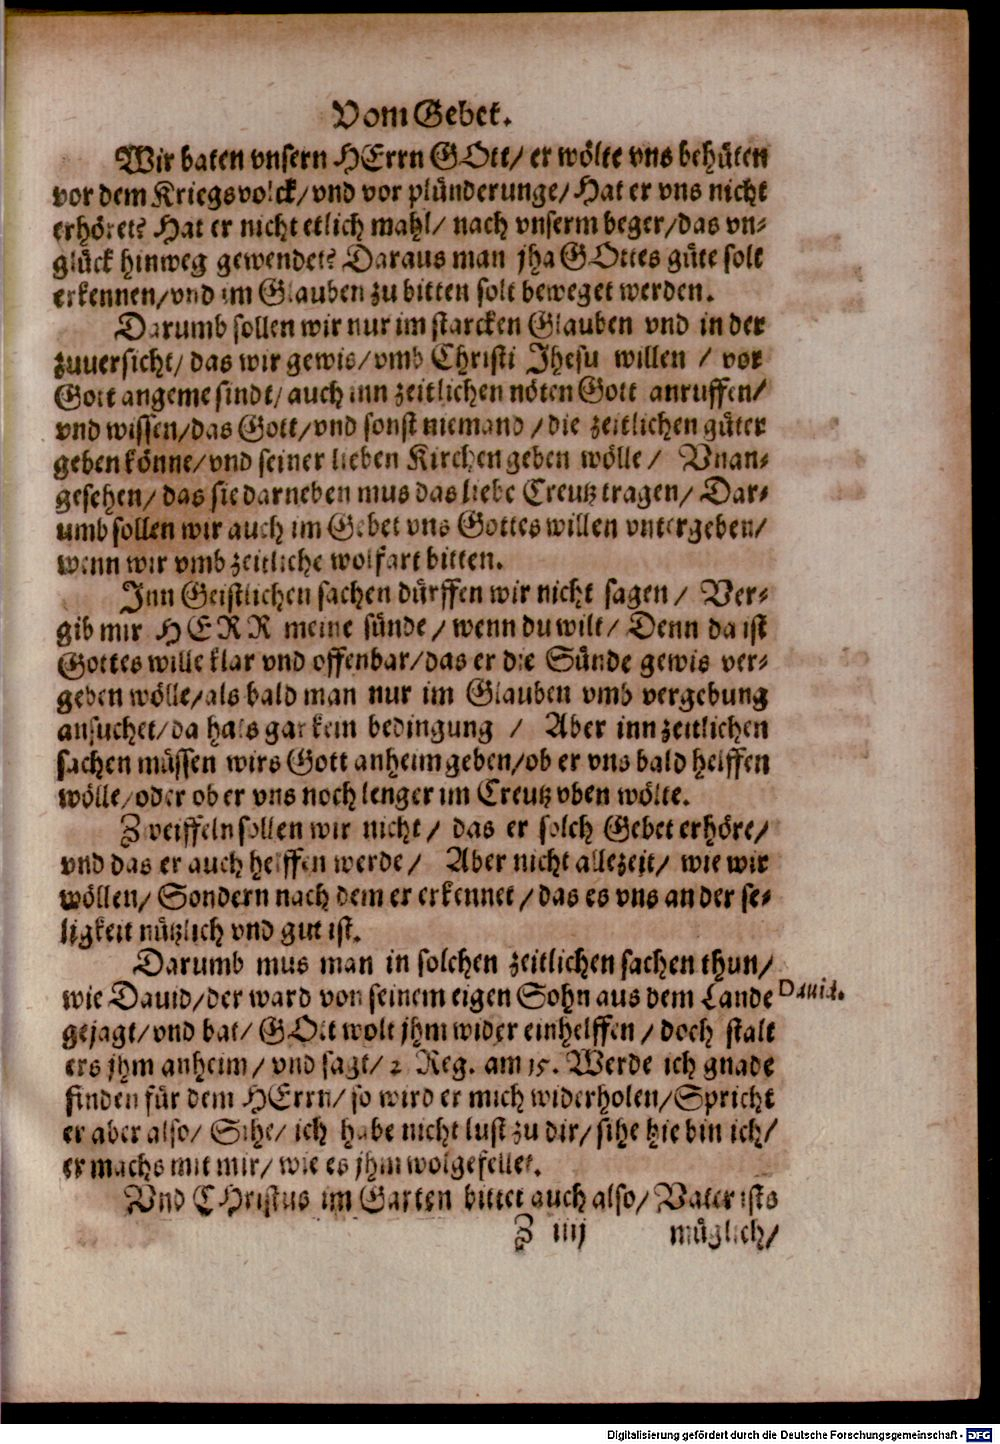 Vom Gebet.
Wir baten vnsern HErrn GOtt/ er wölte vns behüten
vor dem Kriegsvolck/vnd vor plünderunge/ Hat er vns nicht
erhöret? Hat er nicht etlich mahl/ nach vnserm beger/das vn-
glück hinweg gewendet? Daraus man jha GOttes güte solt
erkennen/vnd im Glauben zu bitten solt beweget werden.
Darumb sollen wir nur im starcken Glauben vnd in der
zuuersicht/das wir gewis/vmb Christi Jhesu willen / vor
Gott angeme sindt/auch inn zeitlichen nöten Gott anruffen/
vnd wissen/das Gott/vnd sonst niemand /die zeitlichen güter
geben könne/vnd seiner lieben Kirchen geben wölle/ Vnan-
gesehen/ das sie darneben mus das liebe Creutz tragen/ Dar-
umb sollen wir auch im Gebet vns Gottes willen vntergeben/
wenn wir vmb zeitliche wolfart bitten.
Inn Geistlichen sachen dürffen wir nicht sagen / Ver-
gib mir HERR meine sünde/wenn du wilt/ Denn da ist
Gottes wille klar vnd offenbar/das er die Sünde gewis ver-
geben wölle/als bald man nur im Glauben vmb vergebung
ansuchet/da hats gar kein bedingung / Aber inn zeitlichen
sachen müssen wirs Gott anheim geben/ob er vns bald helffen
wölle/oder ob er vns noch lenger im Creutz vben wölte.
Zweiffeln sollen wir nicht/ das er solch Gebet erhöre/
vnd das er auch helffen werde/ Aber nicht allezeit/ wie wir
wöllen/ Sondern nach dem er erkennet/das es vns an der se-
ligkeit nützlich vnd gut ist.
Darumb mus man in solchen zeitlichen sachen thun/
wie Dauid/der ward von seinem eigen Sohn aus dem Lande
Dauid.
gejagt/vnd bat/ GOtt wolt jhm wider einhelffen/doch stalt
ers jhm anheim/ vnd sagt/ 2. Reg. am 15. Werde ich gnade
finden für dem HErrn/ so wird er mich widerholen/Spricht
er aber also/ Sihe/ ich habe nicht lust zu dir/sihe hie bin ich/
er machs mit mir/wie es jhm wolgefellet.
Vnd CHristus im Garten bittet auch also/ Vater ists
Z iiij
müglich/
Digitalisierung gefördert durch die Deutsche Forschungsgemeinschaft - DFG